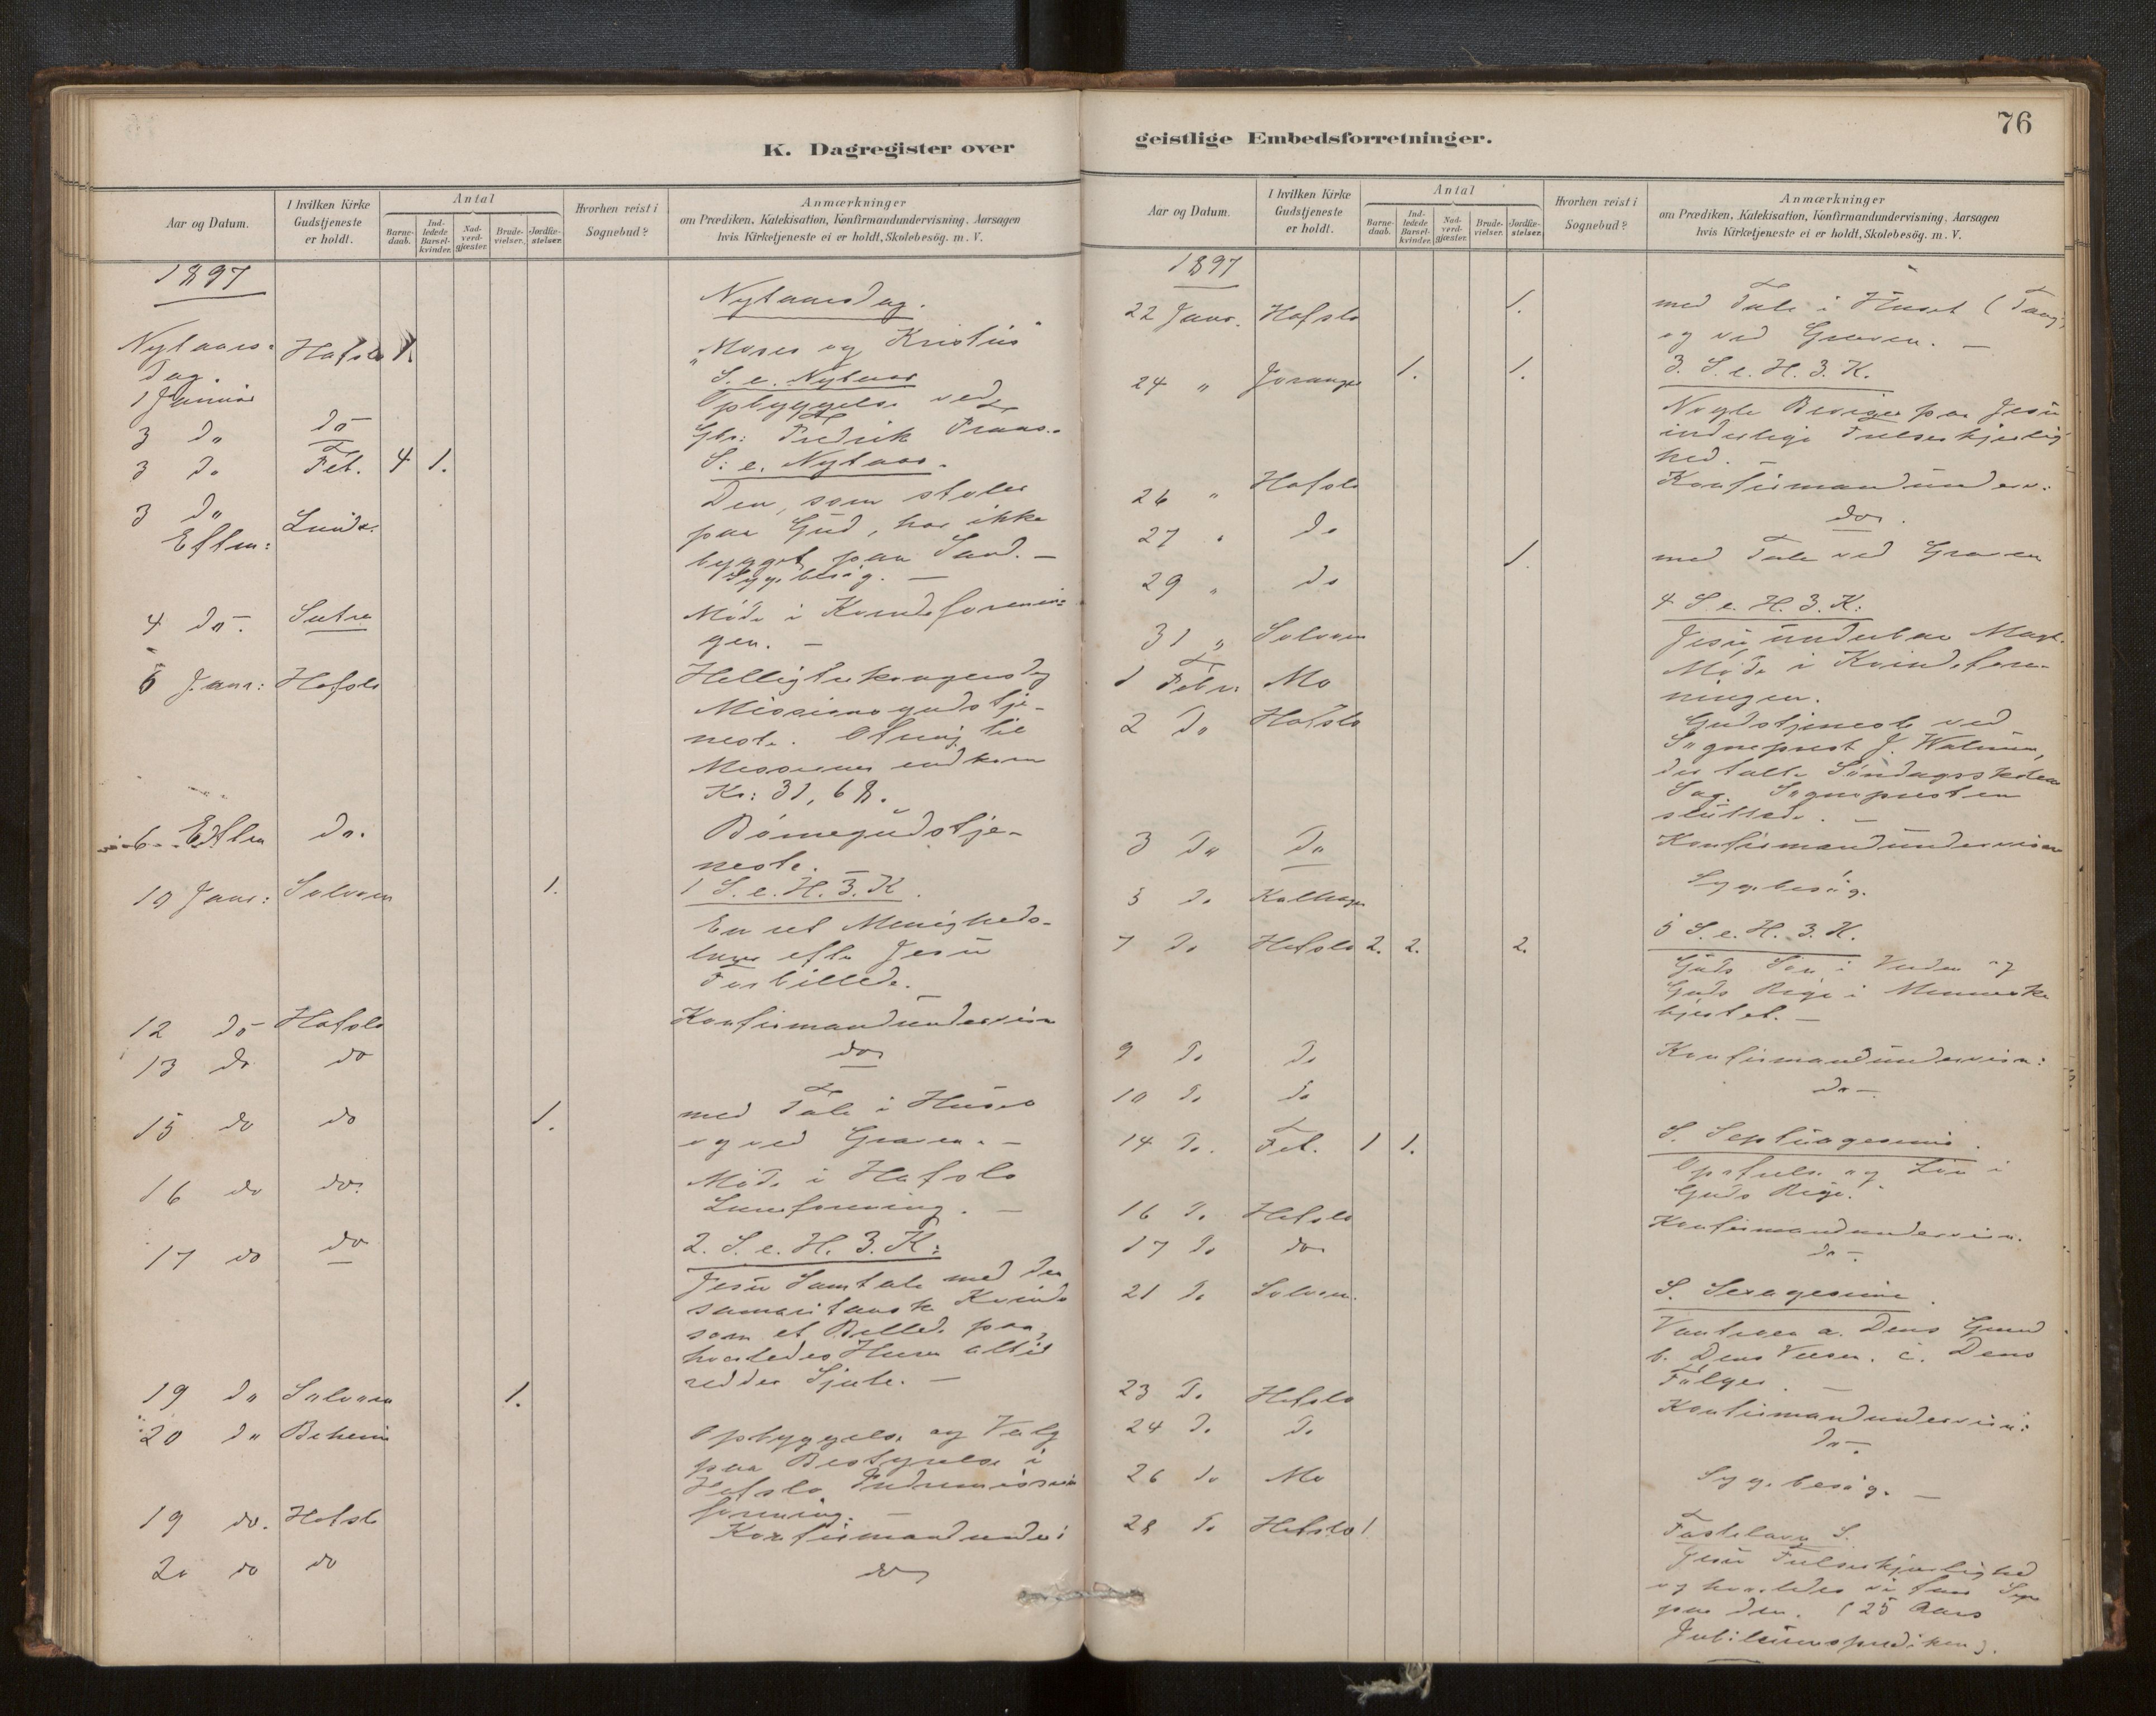 K. Dagregister over
Aar og Datum.
I hvilken Kirke Gudstjeneste er holdt.
Antal
Barne-daab.
Ind-ledede Barsel-kvinder.
Nad-verd-gjæster.
Brude-vielser.
Jordfæ-stelser.
Hvorhen reist i Sognebud?
Anmærkninger
om Prædiken, Katekisation, Konfirmandundervisning, Aarsagen
hvis Kirketjeneste ei er holdt, Skolebesög. m. V.
1897
Nytaarsdag.
Nytaars- Hafslo 1.
dag.
"Moses og Kristus"
1 Januar
S. e. Nytaar
3 do do
Opbyggelse ved
Fredrik
3 do Fet. 4 1.
S. e. Nytaar.
3 do
Eftm:
Den, som stoler
paa Gud, har ikke
bygget paa Sand. -
Sygebesøg. -
4 do.
Møde i Kvindeforenin-
gen. -
6 Janr: Hafslo
Helligtrekongersdag
Missionsgudstje-
neste. Ofring til
Missionen indkom
Kr: 31, 68.
6 Eftm do.
Børnegudstje-
neste.
10 Janr: Solvorn 1.
1 S. e. H. 3. K.
En ret Menigheds-
efter Jesu
Forbillede.
12 do Hafslo
Konfirmandundervisn
13 do do
do
15 do do 1.
med Tale i Huset
og ved Graven. -
16 do do
Møde i Hafslo
17 do do
2. S. e. H. 3. K:
Jesu Samtale med den
samaritanske Kvinde
som et Billede paa,
hvorledes Herren altid
redder Sjæle. -
19 do Solvorn 1.
20 do
Opbyggelse og Valg
paa Bestyrelse i
Hafslo Indremissions
forening. -
19 do. Hafslo
Konfirmandunder:
20 do do
do
geistlige Embedsforretninger.
76
Aar og Datum.
I hvilken Kirke Gudstjeneste er holdt.
Antal
Barne-daab.
Ind-ledede Barsel-kvinder.
Nad-verd-gjæster.
Brude-vielser.
Jordfæ-stelser.
Hvorhen reist i Sognebud?
Anmærkninger
om Prædiken, Katekisation, Konfirmandundervisning, Aarsagen
hvis Kirketjeneste ei er holdt, Skolebesög. m. V.
1897
22 Janr. Hafslo 1.
med Tale i Huset
og ved Graven. -
24 " Joranger 1. 1.
3. S. e. H. 3. K.
Nogle Beviser paa Jesu
inderlige Frelserkjærlig-
hed. -
26 " Hafslo
Konfirmandunderv:
27 " do
do.
29 " do 1.
med Tale ved Graven
31 " Solvorn
4 S. e. H. 3. K:
Jesu underbare Magt.
1 Febr. Mo
Møde i Kvindefore-
ningen.
2 do Hafslo
Gudstjeneste ved
Sogneprest J. Walnum,
der talte Søndagsskolens
Sag. Sognepresten
sluttede. -
3 do do
Konfirmandundervisn
5 do
Sygebesøg.
7 do Hafslo 2. 2. 2.
5 S. e. H. 3. K.
Guds Søn i Verden og
Guds Rige i Menneske
hjertet. -
9 do do
Konfirmandundervisn:
10 do do
do -
14 do. Fet. 1 1.
S. Septuagesima.
og Liv i
Guds Rige.
16 do Hafslo
Konfirmandundervisn.
17 do do
do -.
21 do Solvorn.
S. Sexagesima.
Vantroen a. Dens Grund
b. Dens Væsen. c. Dens
Følger. -
23 do Hafslo
Konfirmandundervisn:
24 do do
do -.
26 do Mo
Sygebesøg. -
28 do Hafslo 1
Fastelavn S.
Jesu Frelserkjærlighed
og hvorledes vi faar Syn
paa den. (25 Aars
Jubilæumsprædiken).